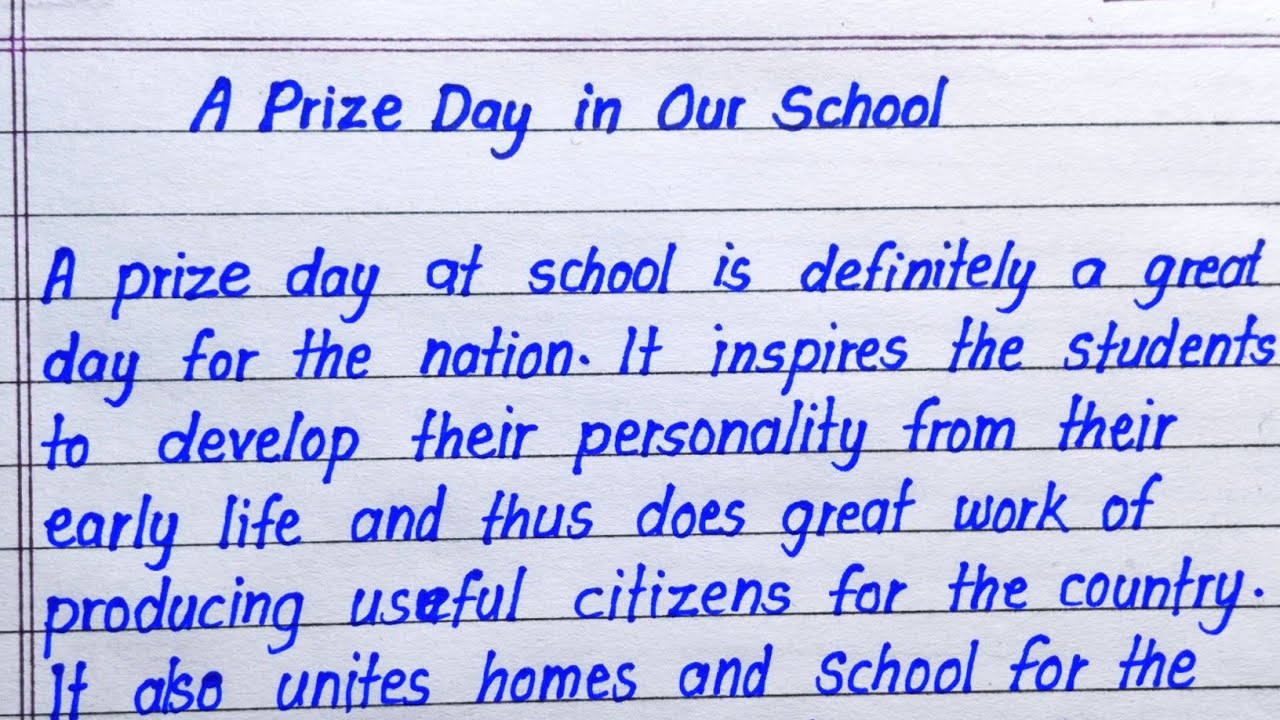 A Prize Day in Our School
A prize day at school is definitely a great
day for the nation. It inspires the students
to develop their personality from their
early life and thus does great work of
producing useful citizens for the country.
It also unites homes and school for the